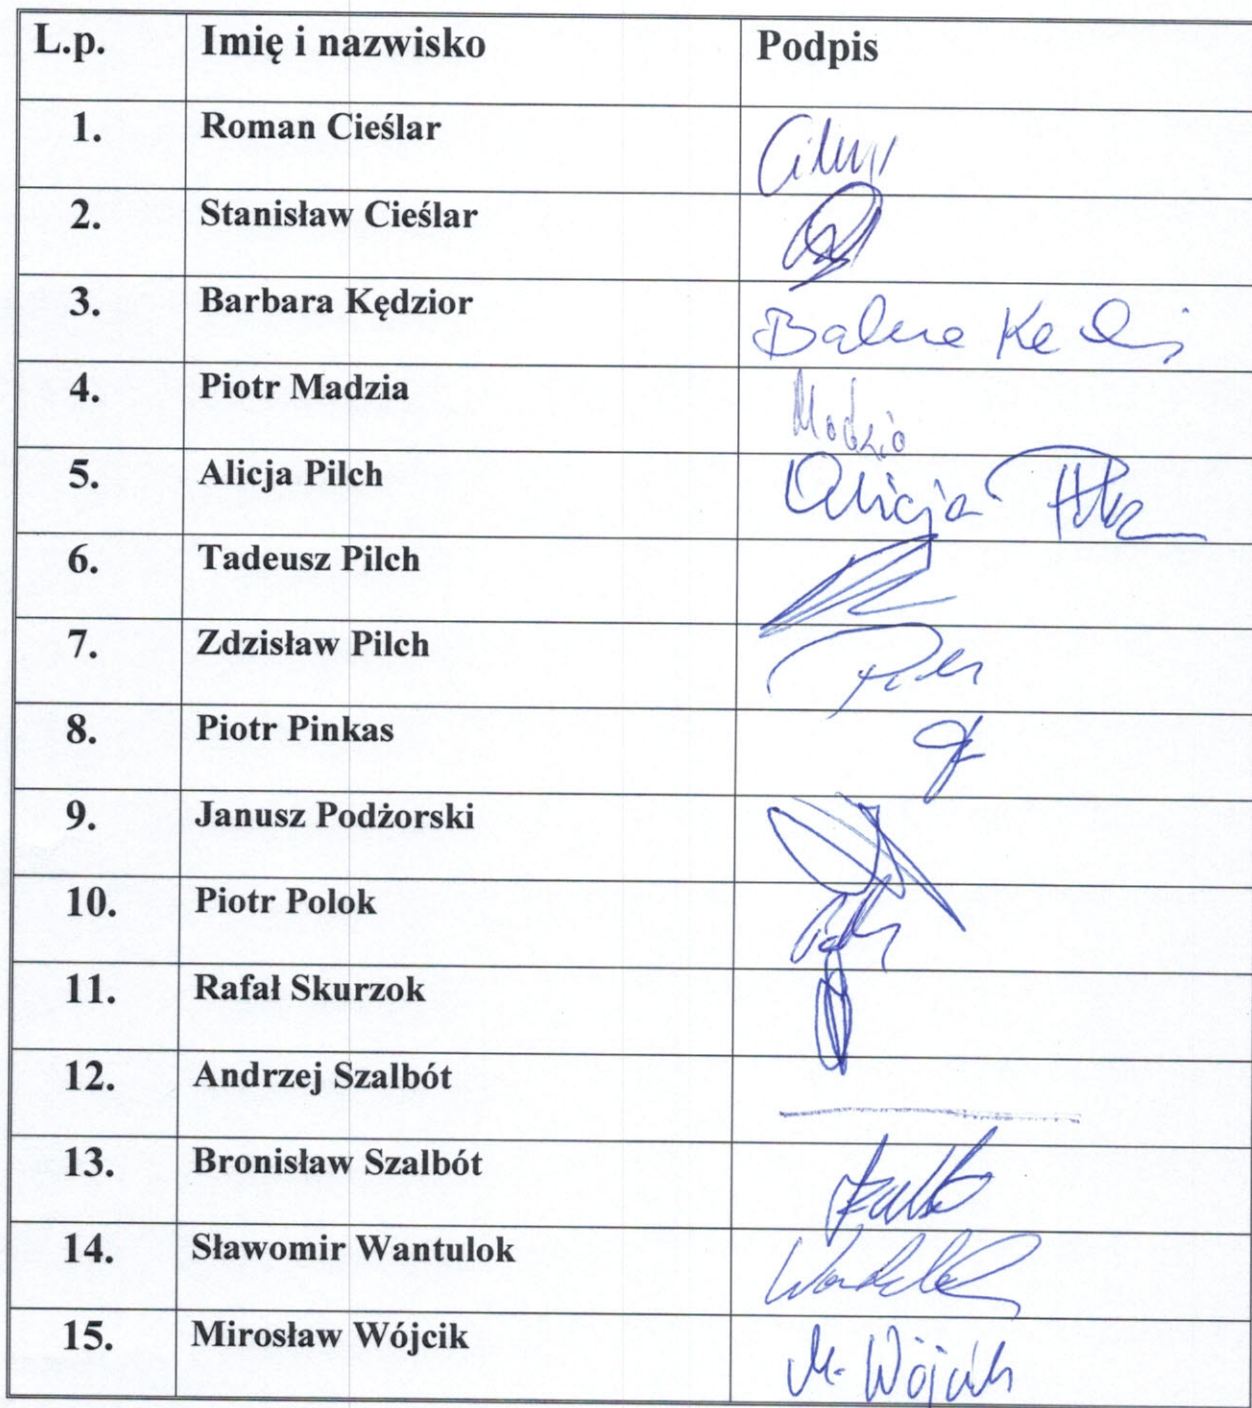 L.p. Imię i nazwisko Podpis
1. Roman Cieślar
2. Stanisław Cieślar
3. Barbara Kędzior
4. Piotr Madzia Madzia
5. Alicja Pilch Alicja
6. Tadeusz Pilch
7. Zdzisław Pilch
8. Piotr Pinkas
9. Janusz Podżorski
10. Piotr Polok
11. Rafał Skurzok
12. Andrzej Szalbót
13. Bronisław Szalbót
14. Sławomir Wantulok
15. Mirosław Wójcik M. Wójcik